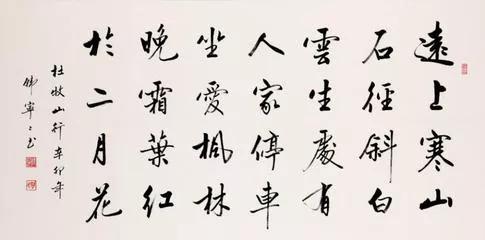 遠上寒山
石徑斜白
雲生處有
人家停車
坐愛楓林
晚霜葉紅
於二月花
杜牧山行辛卯年
寧